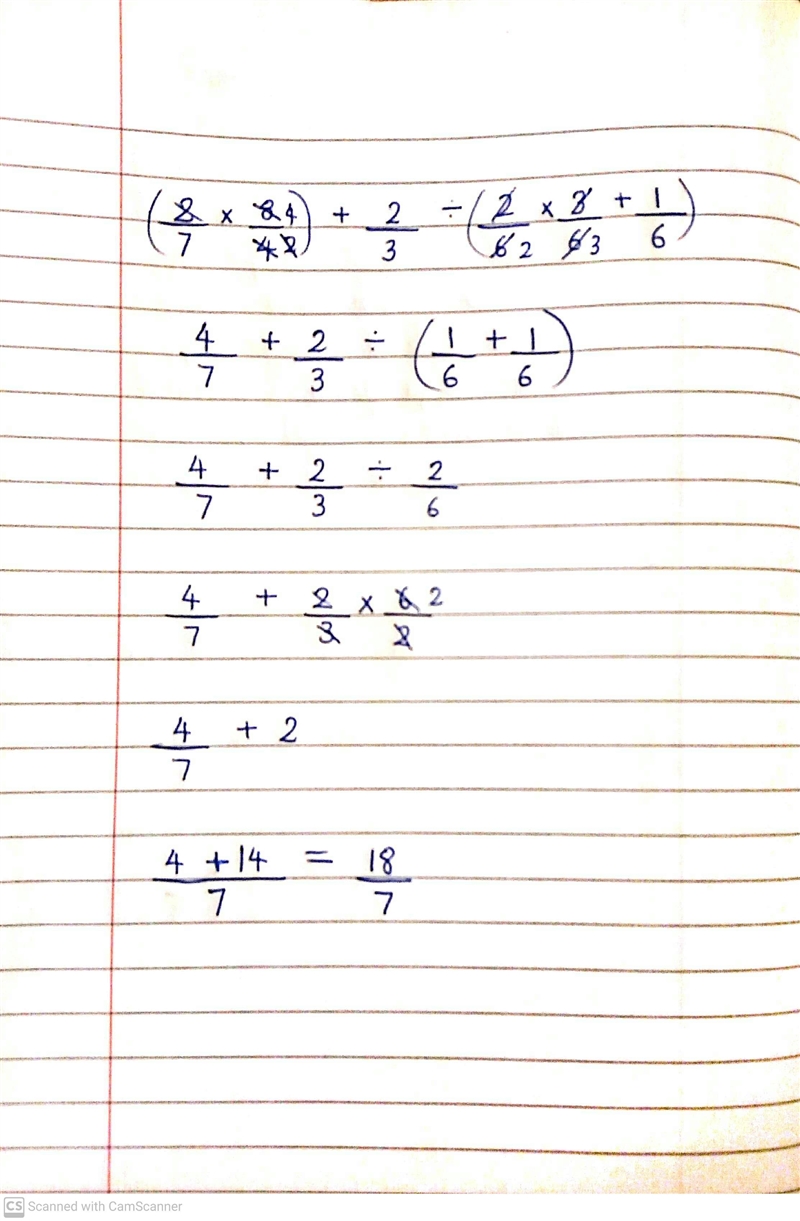 (2/7 × 8 4/4 2) + 2/3 ÷ (2/6 2 × 3/6 3 + 1/6)
4/7 + 2/3 ÷ (1/6 + 1/6)
4/7 + 2/3 ÷ 2/6
4/7 + 2/3 × 6 2/2
4/7 + 2
4 + 14/7 = 18/7
CS Scanned with CamScanner